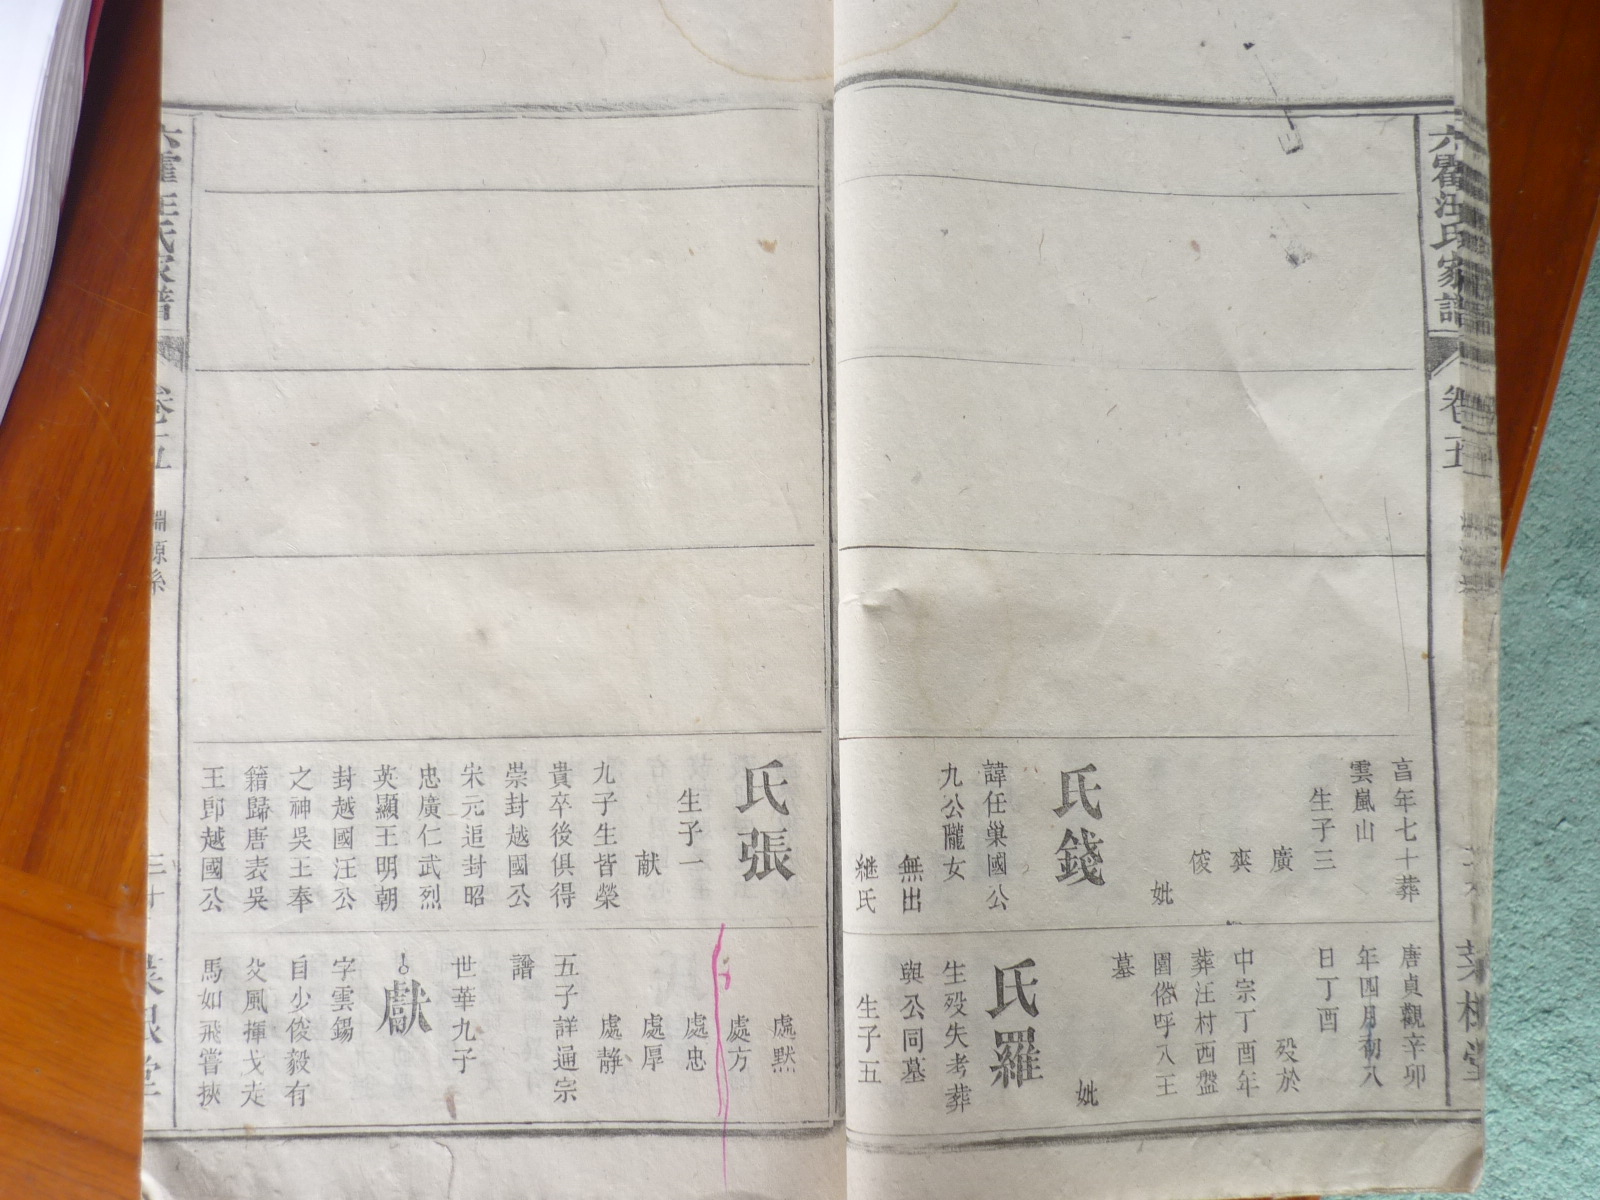 六霍汪氏家譜
卷五
亯年七十葬
雲嵐山
生子三
廣
爽
俊
妣
氏錢
諱任巢國公
九公隴女
無出
継氏
唐貞觀辛卯
年四月初八
日丁酉
歿於
中宗丁酉年
葬汪村西盤
園俗呼八王
墓
妣
氏羅
生歿失考葬
與公同墓
生子五
氏張
生子一
献
九子生皆榮
貴卒後俱得
崇封越國公
宋元追封昭
忠廣仁武烈
英顯王明朝
封越國汪公
之神吳王奉
籍歸唐表吳
王卽越國公
處默
處方
處忠
處厚
處靜
五子詳通宗
譜
世華九子
獻
字雲錫
自少俊毅有
父風揮戈走
馬如飛嘗挾
卷五
淵源系
三十